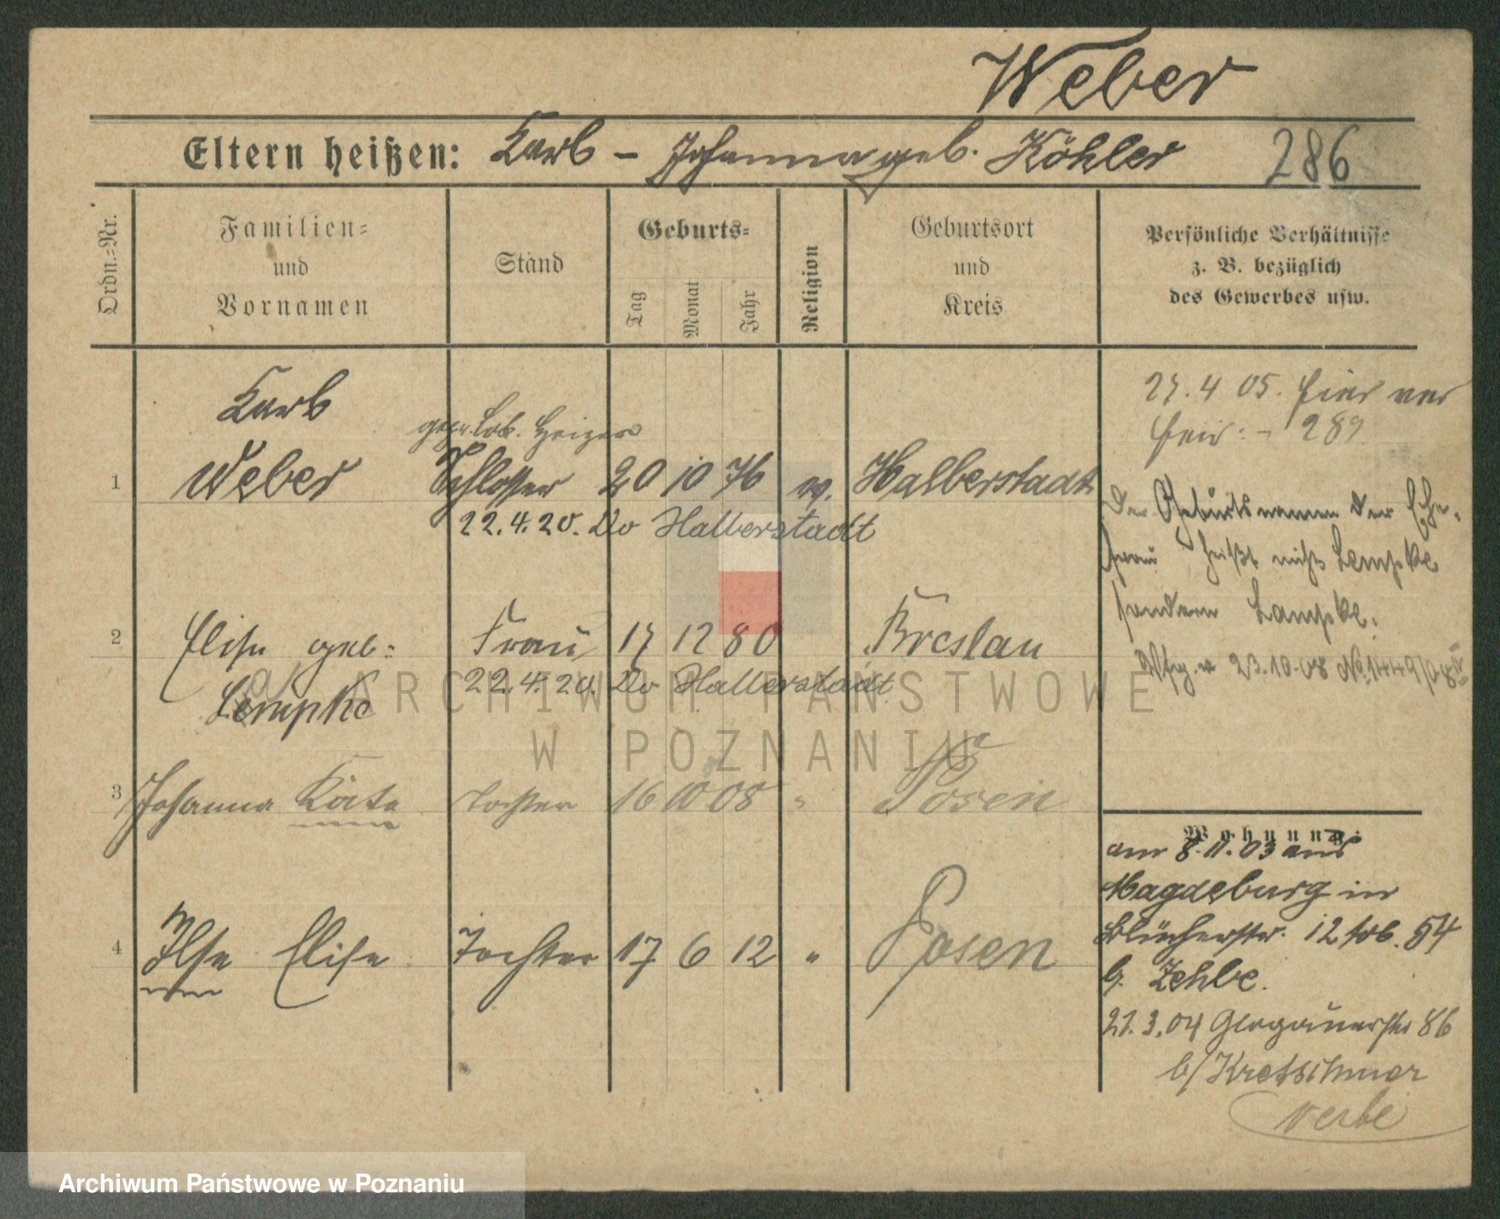 Weber
Eltern heißen: Karl – Johanna geb. Köhler 286
Ordn.-Nr.
Familien-
und
Vornamen
Stand
Geburts-
Tag
Monat
Jahr
Religion
Geburtsort
und
Kreis
Persönliche Verhältnisse
z. B. bezüglich
des Gewerbes usw.
1 Karl
Weber
gepr. Lok. Heizer
Schlosser 20 10 76 ev. Halberstadt
22.4.20. Do Halberstadt
2 Elise geb.
Lempke
Frau 17 12 80 Breslau
22.4.20. Do Halberstadt
3 Johanna Käte Tochter 16 10 08 " Posen
4 Ilse Elise Tochter 17 6 12 " Posen
27.4 05.
289
Der Geburtsnamen der Ehe-
frau heißt nicht Lempke
sondern Lampke.
23.10.08
Wohnung:
am 8.11.03 aus
Magdeburg in
Blücherstr. 12 54
b. Zehbe.
21.3.04 Glogauerstr 86
b/Kretschmer
verbe
ARCHIWUM PAŃSTWOWE
W POZNANIU
Archiwum Państwowe w Poznaniu